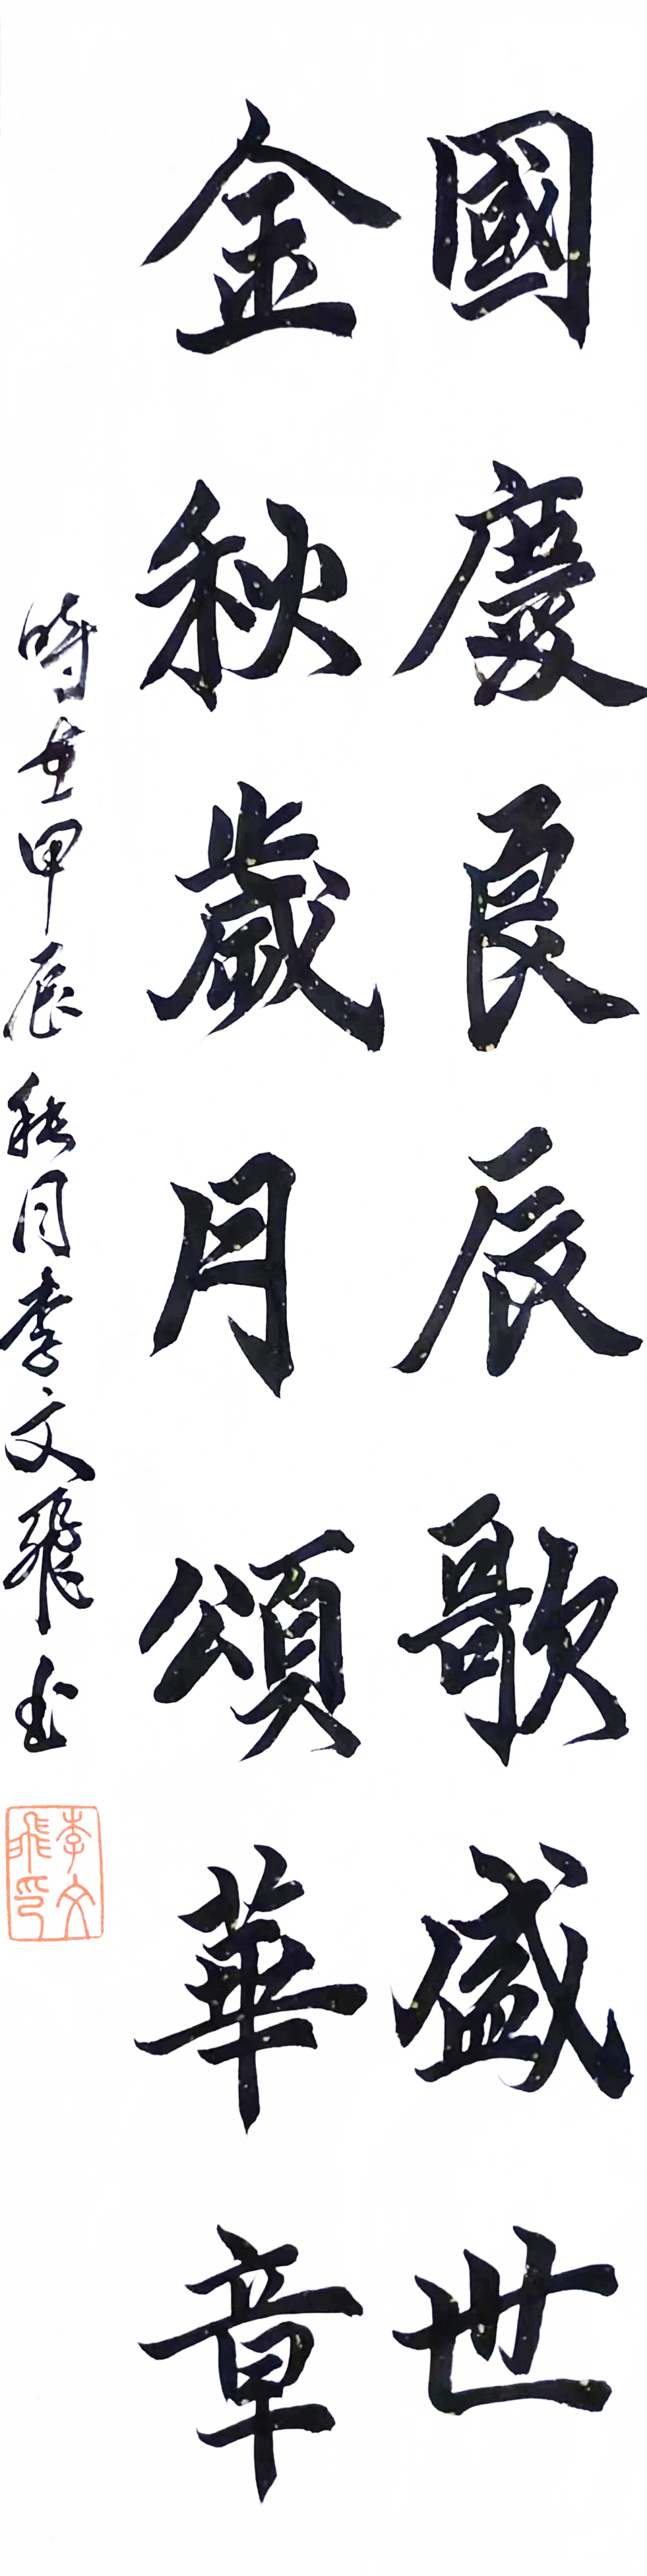 國慶良辰歌盛世
金秋歲月頌華章
時在甲辰秋月李文飛书
李文飛印